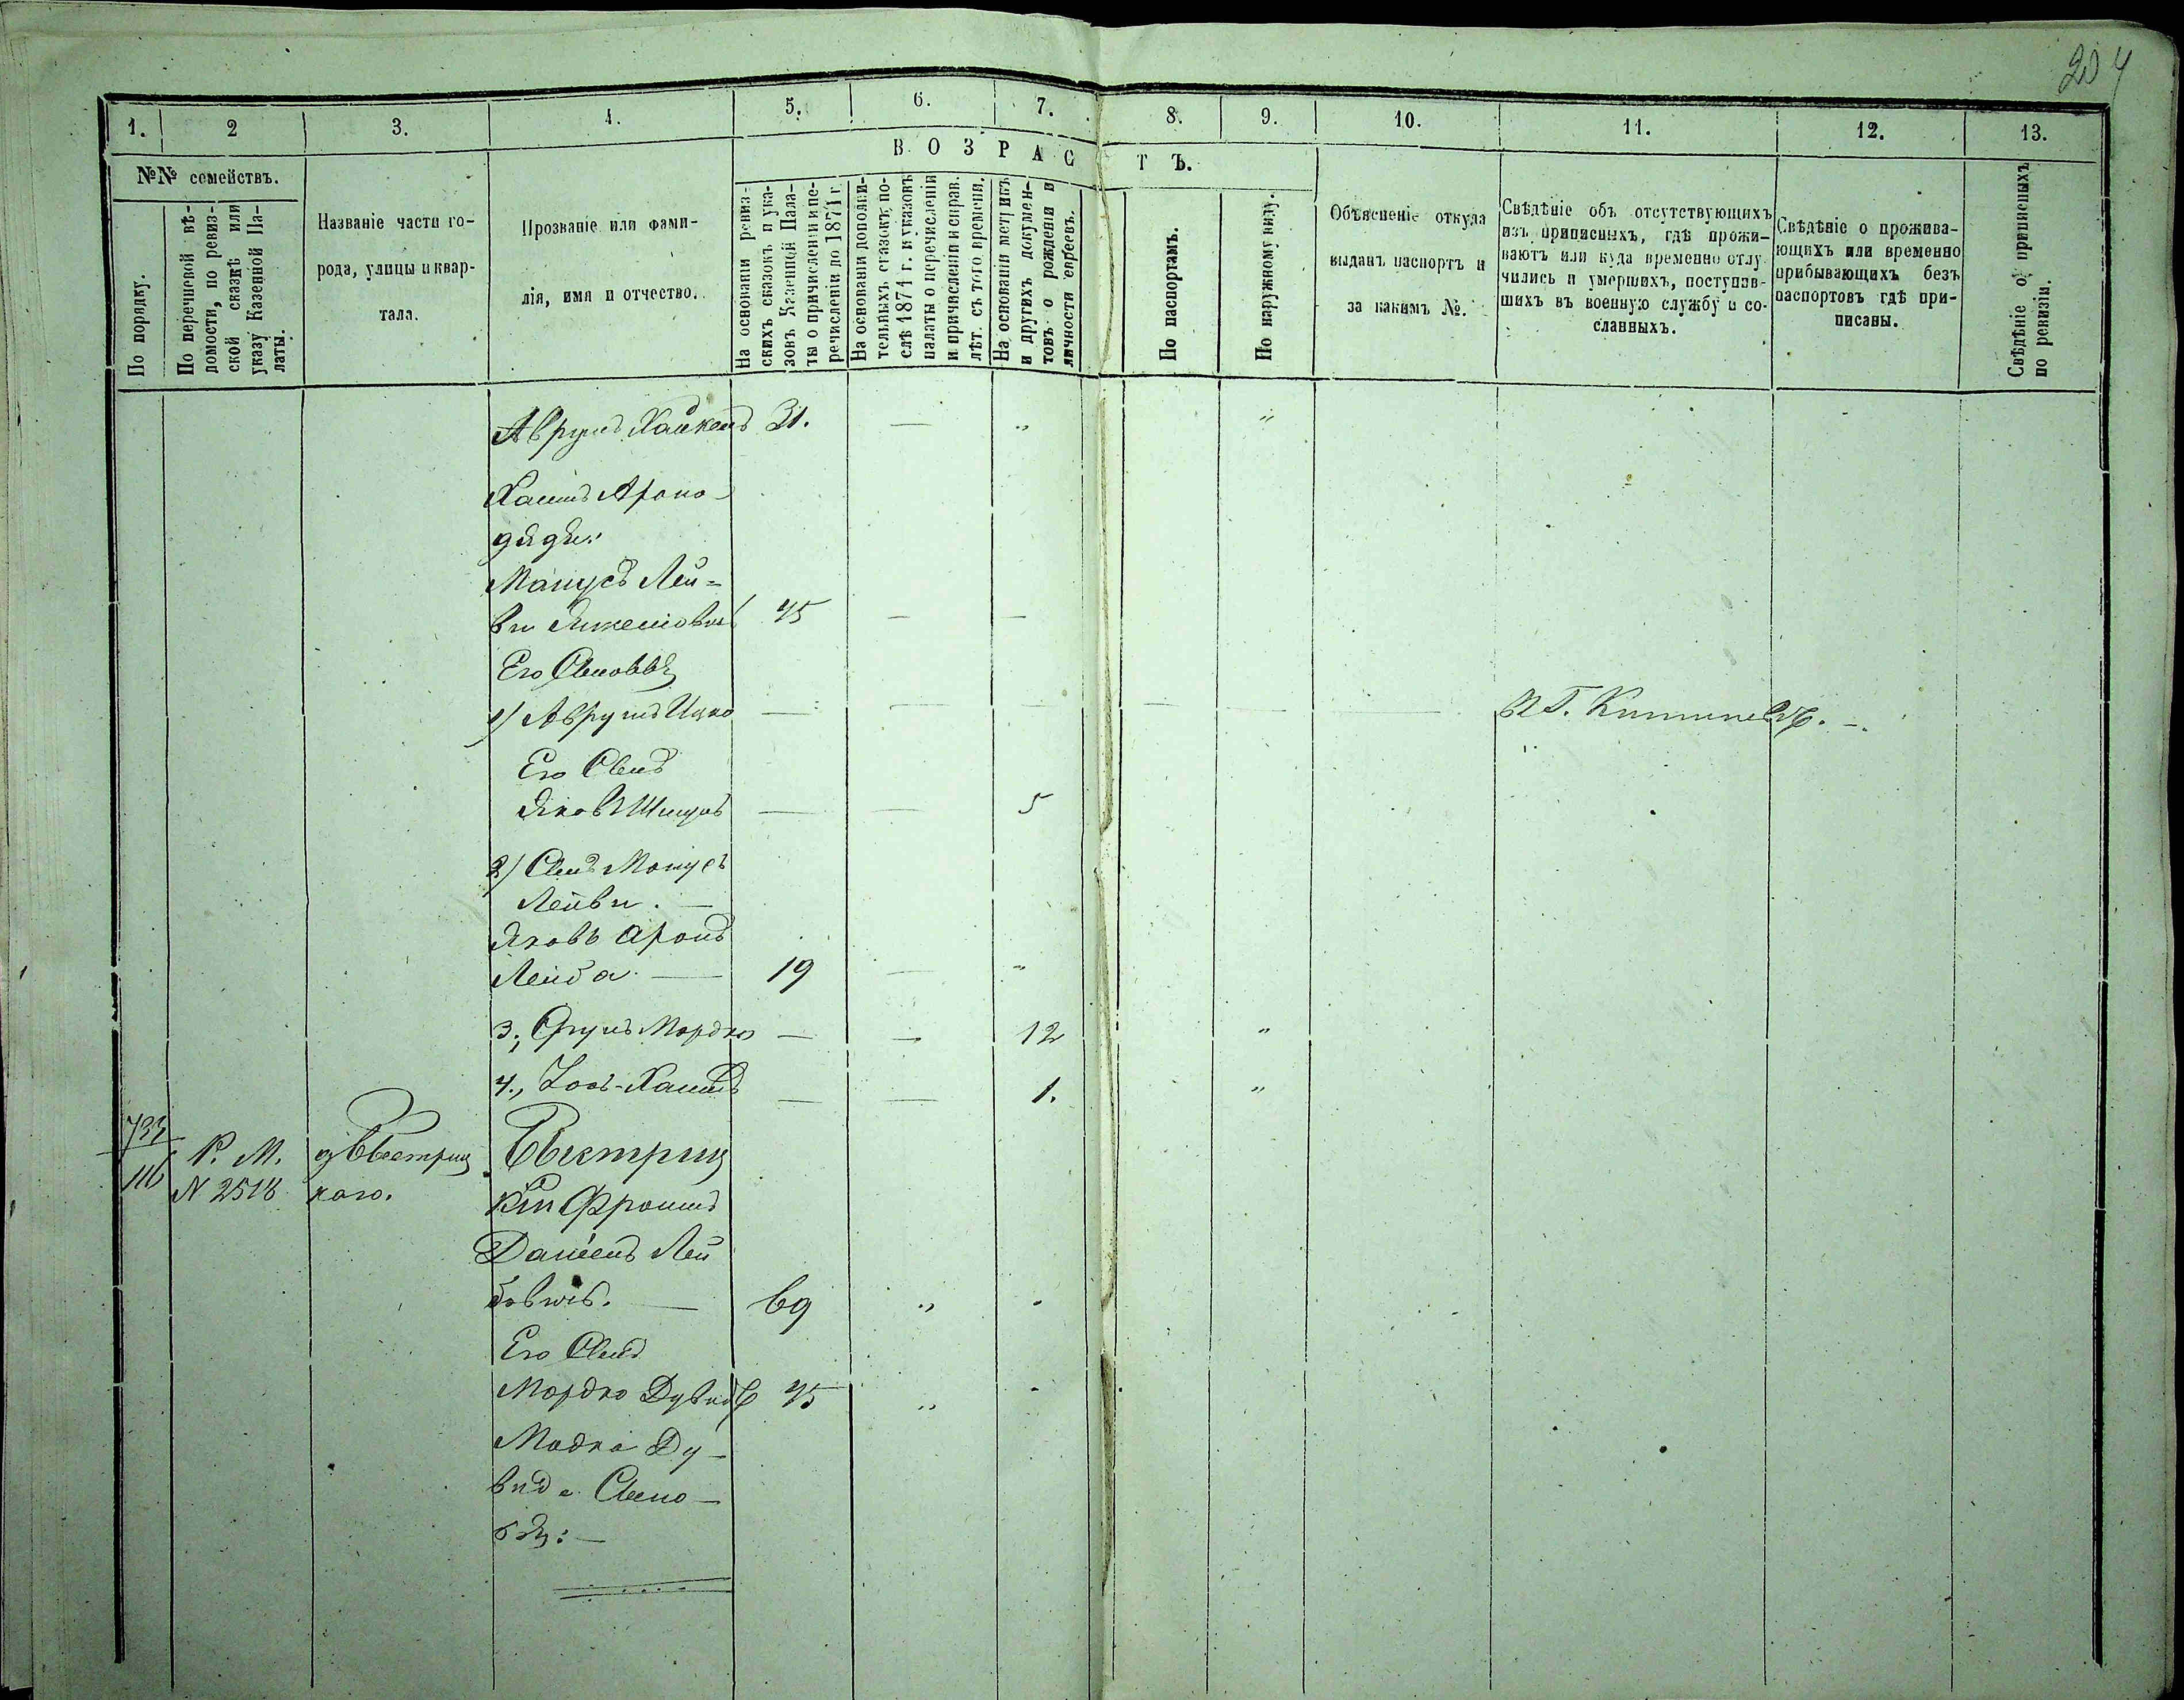 204
1. 2 3. 4. 5. 6. 7. 8. 9. 10. 11. 12. 13.
В О З Р А С Т Ъ.
№№ семействъ.
По порядку.
По перечневой вѣ-
домости, по ревиз-
ской сказкѣ или
указу Казенной Па-
латы.
Названіе части го-
рода, улицы и квар-
тала.
Прозваніе или фами-
лія, имя и отчество.
На основаніи ревиз-
скихъ сказокъ и ука-
зовъ Казенной Пала-
ты о причисленіи и пе-
речисленіи до 1871 г.
На основаніи дополни-
тельныхъ сказокъ по-
слѣ 1871 г. и указовъ
палаты о перечисленіи
и причисленіи и справ.
лѣт. съ того времени.
На основаніи метрикъ
и другихъ докумен-
товъ о рожденіи и
личности евреевъ.
По паспортамъ.
По наружному виду.
Объясненіе откуда
выданъ паспортъ и
за какимъ №.
Свѣдѣніе объ отсутствующихъ
изъ приписныхъ, гдѣ прожи-
ваютъ или куда временно отлу-
чились и умершихъ, поступив-
шихъ въ военную службу и со-
сланныхъ.
Свѣдѣніе о прожива-
ющихъ или временно
прибывающихъ безъ
паспортовъ гдѣ при-
писаны.
Свѣдѣніе о приписныхъ
по ревизіи.
Аврумъ Хаимъ 31. — " "
Хаимъ Арона
дяди:
Манусъ Лей=
ви 45 — —
Его Сыновья
1) Аврумъ Ицко — — — — — — В Г. Кишиневѣ. —
Его Сынъ
Яковъ — — 5
2) Сынъ Мануса
Лейви. —
Яковъ Аронъ
Лейба — 19 — "
3., Мордко — — 12 "
4., Хаимъ — — 1. "
733
116 Р. М. Быстриц Быстриц
N 2518 каго. кій Фроимъ
Даніель Лей
бовичъ. — 69 " "
Его Сынъ
Мордко Дувидъ 45 " "
Мордка Ду-
вида Сыно-
вья: —